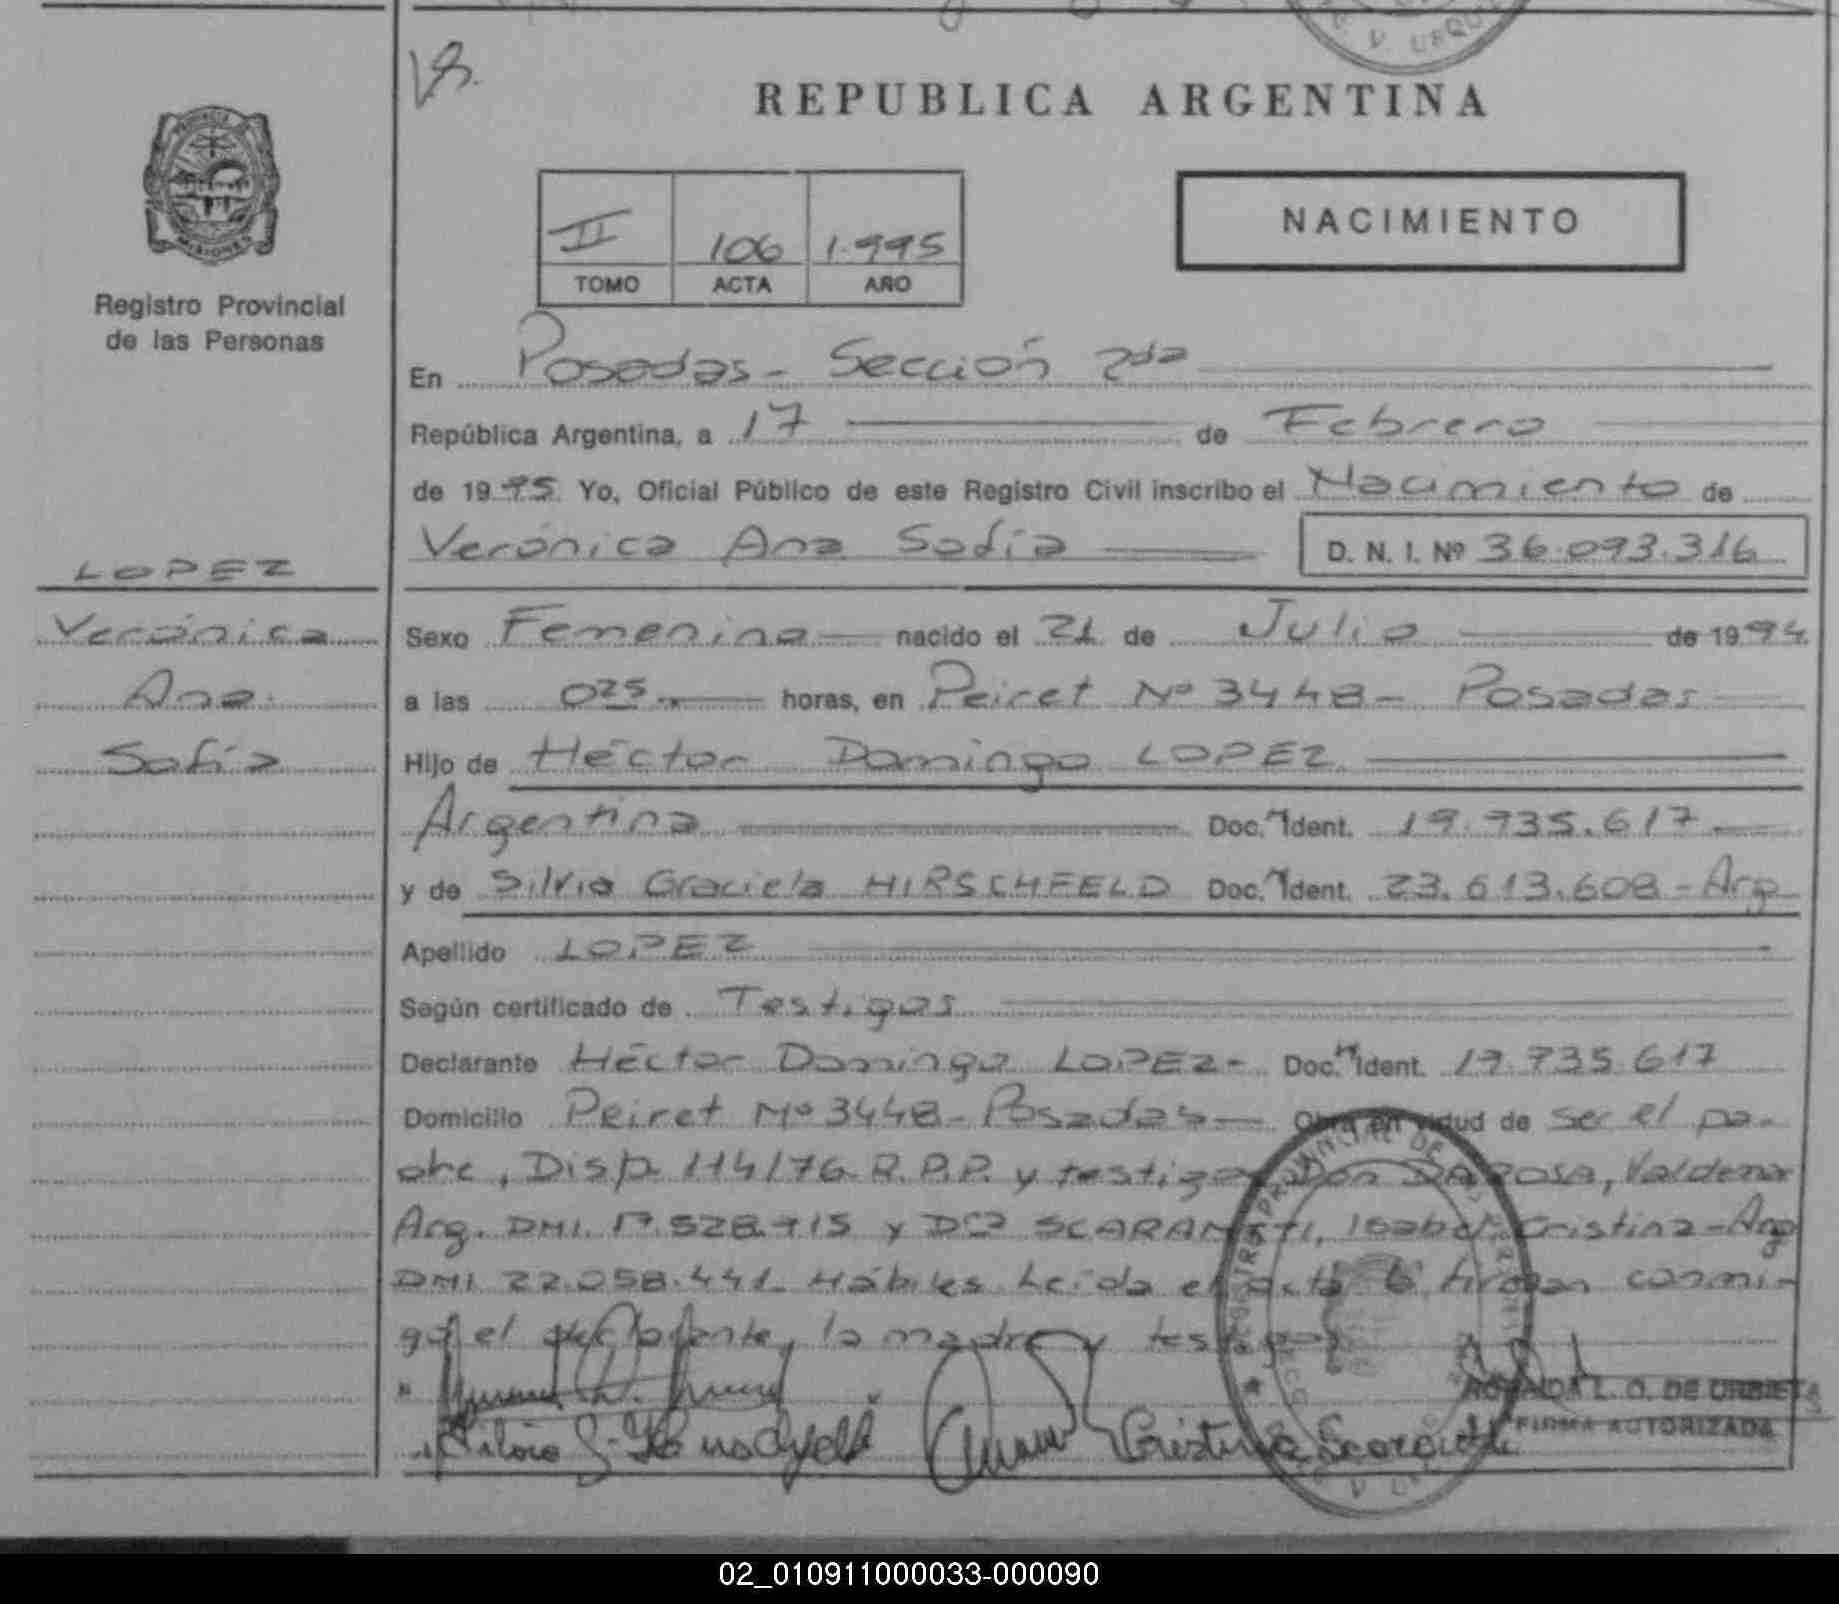 REPUBLICA ARGENTINA
II 106 1.995
TOMO ACTA AÑO
NACIMIENTO
PROVINCIA DE MISIONES
Registro Provincial
de las Personas
En Posadas - Sección 2da
República Argentina, a 17 de Febrero
de 1995 Yo, Oficial Público de este Registro Civil inscribo el Nacimiento de
Verónica Ana Sofía D. N. I. Nº 36.093.316
LOPEZ
Verónica
Ana
Sofía
Sexo Femenino nacido el 21 de Julio de 1994
a las 025 horas, en Peiret Nº 3448 - Posadas
Hijo de Héctor Domingo LOPEZ
Argentina Doc. Ident. 19.735.617
y de Silvia Graciela HIRSCHFELD Doc. Ident. 23.613.608 - Arg
Apellido LOPEZ
Según certificado de Testigos
Declarante Héctor Domingo LOPEZ - Doc. Ident. 19.735.617
Domicilio Peiret Nº 3448 - Posadas - Obra en vidud de ser el pa-
dre, Disp. 114/76 R.P.P. y testigos Don DA ROSA,
Arg. DNI. y Dña Isabel Cristina - Arg
DNI 22.058.441 Hábiles Leída el acta la firman conmi-
go el declarante, la madre y testigos
L. O. DE
FIRMA AUTORIZADA
02_010911000033-000090